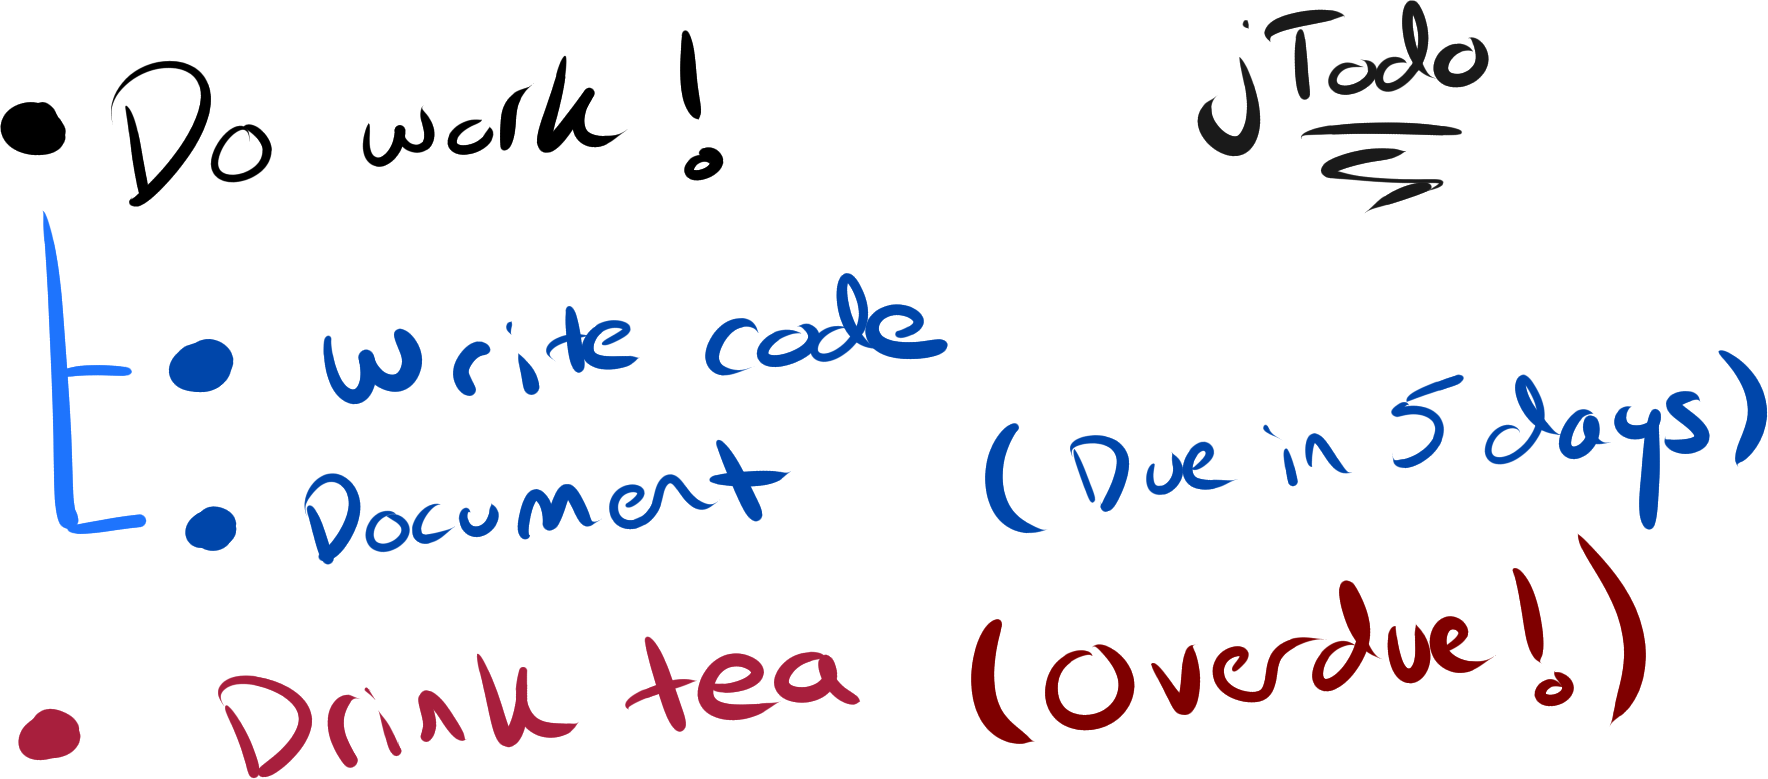 jTodo
Do work!
Write code
Document (Due in 5 days)
Drink tea (Overdue!)